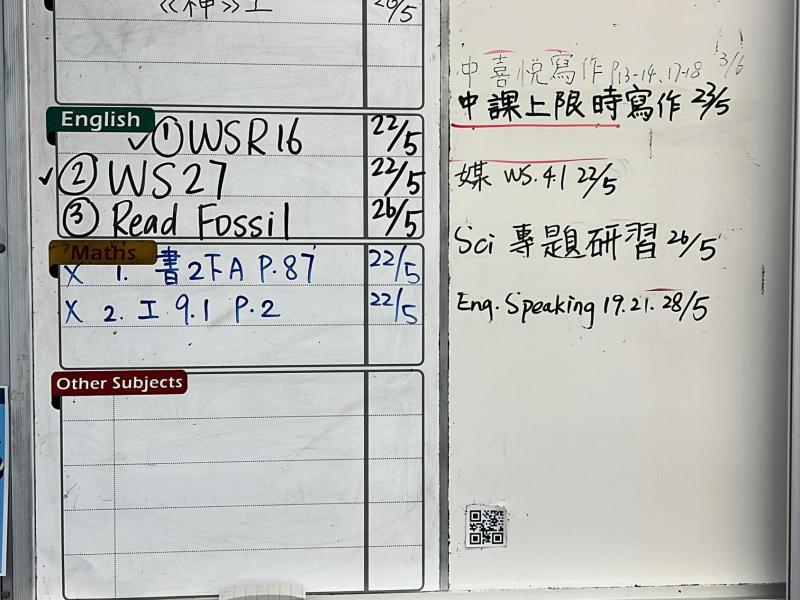 《神》工 26/5
English
✓ ① WSR16 22/5
✓ ② WS27 22/5
③ Read Fossil 26/5
Maths
X 1. 書2下A P.87 22/5
X 2. I 9.1 P.2 22/5
Other Subjects
中喜悅寫作 P.13-14、17-18 3/6
中課上限時寫作 23/5
媒 WS.4.1 22/5
Sci 專題研習 26/5
Eng. Speaking 19.21.28/5